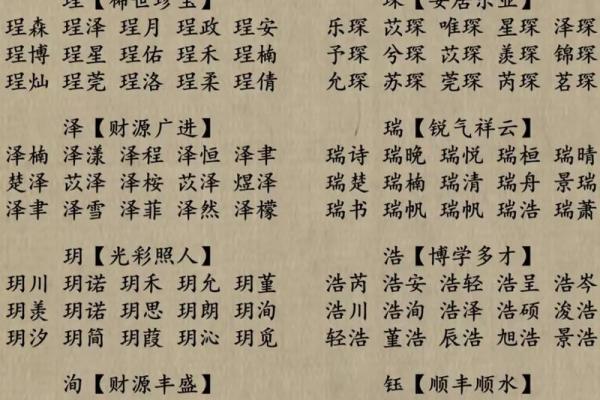 珵【稀世珍宝】
珵森 珵泽 珵月 珵政 珵安
珵博 珵星 珵佑 珵禾 珵楠
珵灿 珵莞 珵洛 珵柔 珵倩
泽【财源广进】
泽楠 泽漾 泽程 泽恒 泽聿
楚泽 苡泽 泽桉 苡泽 煜泽
泽聿 泽雪 泽菲 泽然 泽檬
玥【光彩照人】
玥川 玥诺 玥禾 玥允 玥堇
玥羡 玥诺 玥思 玥朗 玥洵
玥汐 玥简 玥葭 玥沁 玥觅
洵【财源丰盛】
琛【安居乐业】
乐琛 苡琛 唯琛 星琛 泽琛
予琛 兮琛 苡琛 羡琛 锦琛
允琛 苏琛 莞琛 芮琛 茗琛
瑞【锐气祥云】
瑞诗 瑞晚 瑞悦 瑞桓 瑞晴
瑞楚 瑞楠 瑞清 瑞舟 景瑞
瑞书 瑞帆 瑞帆 瑞浩 瑞萧
浩【博学多才】
浩芮 浩安 浩轻 浩呈 浩岑
浩川 浩洵 浩泽 浩硕 浚浩
轻浩 堇浩 辰浩 旭浩 景浩
钰【顺丰顺水】